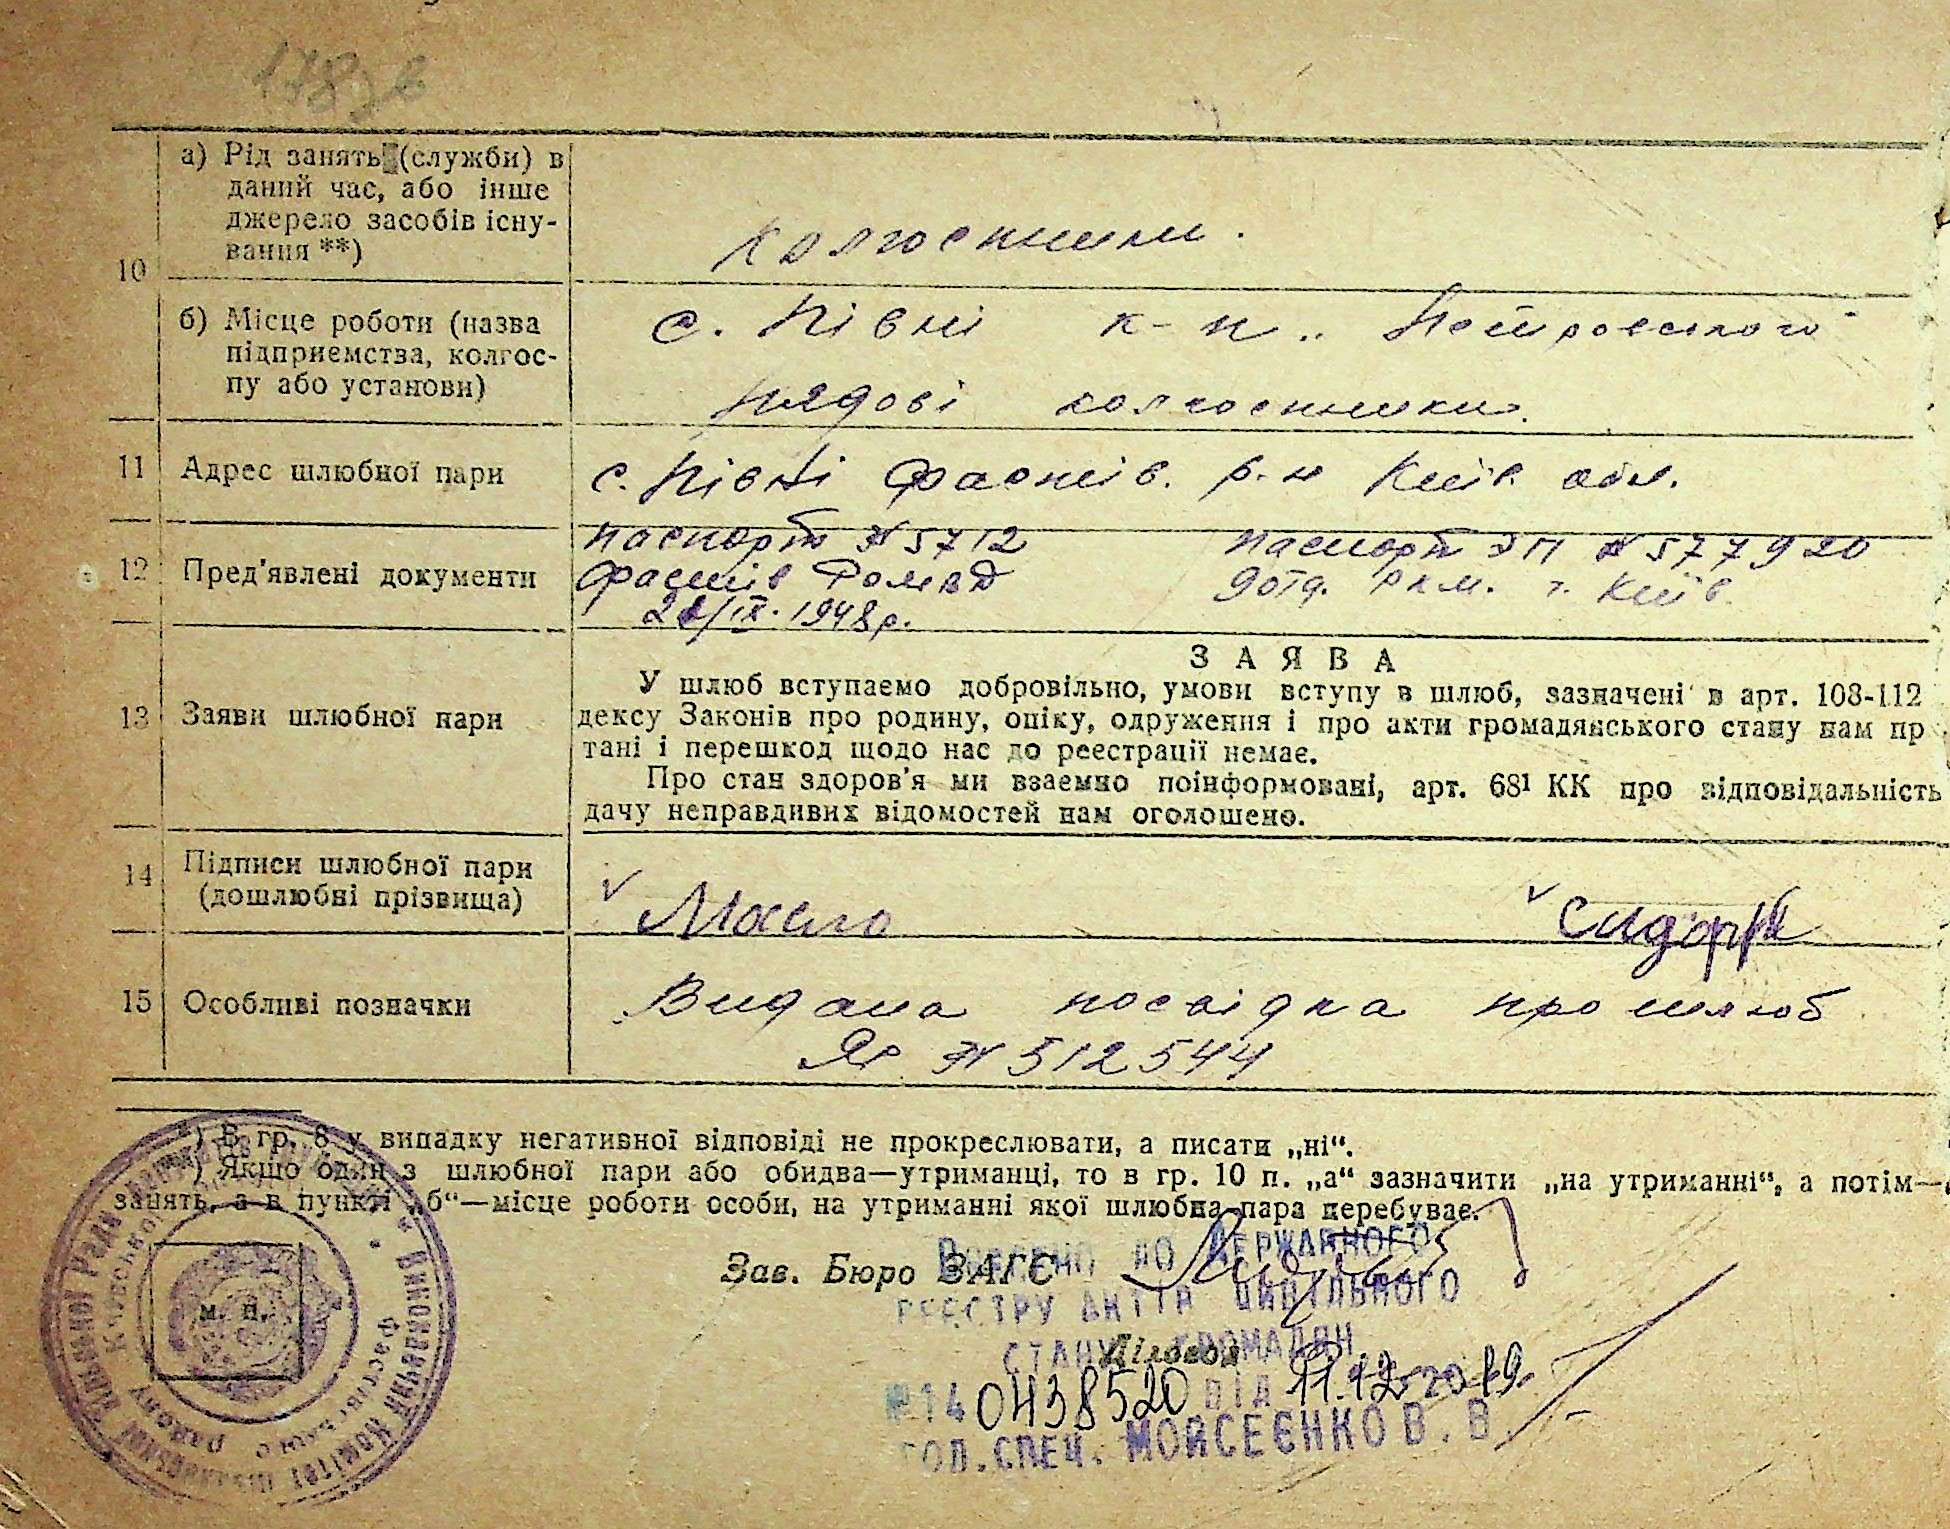 178
10
а) Рід занять (служби) в
даний час, або інше
джерело засобів існу-
вання **)
колгоспники.
б) Місце роботи (назва
підприємства, колгос-
пу або установи)
с. Півні к-п. Петровського
рядові колгоспники.
11 Адрес шлюбної пари
с. Півні Фастів. р-н Київ. обл.
12 Пред'явлені документи
паспорт № 5712 паспорт ЭП № 577920
Фастів 9 отд. ркм. г. Київ
/IX. 1948 р.
З А Я В А
13 Заяви шлюбної пари
У шлюб вступаємо добровільно, умови вступу в шлюб, зазначені в арт. 108-112
дексу Законів про родину, опіку, одруження і про акти громадянського стану нам пр
тані і перешкод щодо нас до реестрації немає.
Про стан здоров'я ми взаємно поінформовані, арт. 68¹ КК про відповідальність
дачу неправдивих відомостей нам оголошено.
14 Підписи шлюбної пари
(дошлюбні прізвища)
v Масло v Сидор
15 Особливі позначки
Видана посвідка про шлюб
№ 512544
*) В гр. 8 у випадку негативної відповіді не прокреслювати, а писати „ні“.
) Якщо один з шлюбної пари або обидва—утриманці, то в гр. 10 п. „а“ зазначити „на утриманні“, а потім—
занять, а в пункті „б“—місце роботи особи, на утриманні якої шлюбна пара перебуває.
Зав. Бюро ЗАГС
Діловод
м. п.
Виконавчий Комітет
Фастівського району
Київської
ВНЕСЕНО ДО ДЕРЖАВНОГО
РЕЄСТРУ АКТІВ ЦИВІЛЬНОГО
СТАНУ ГРОМАДЯН
№ 140438520 ВІД 11.12.2019
ГОЛ. СПЕЦ. МОЙСЕЄНКО В. В.